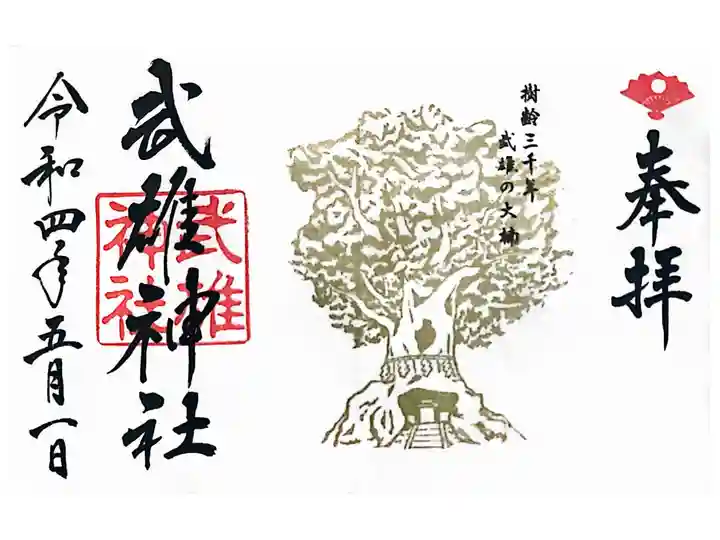 奉拝
樹齢三千年
武雄の大楠
武雄神社
武雄
神社
令和四年五月一日